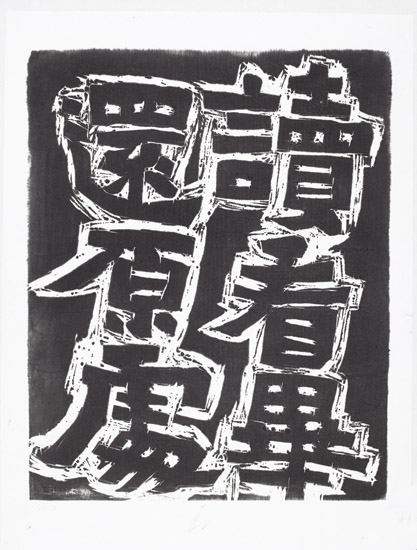 讀看畢
還原處